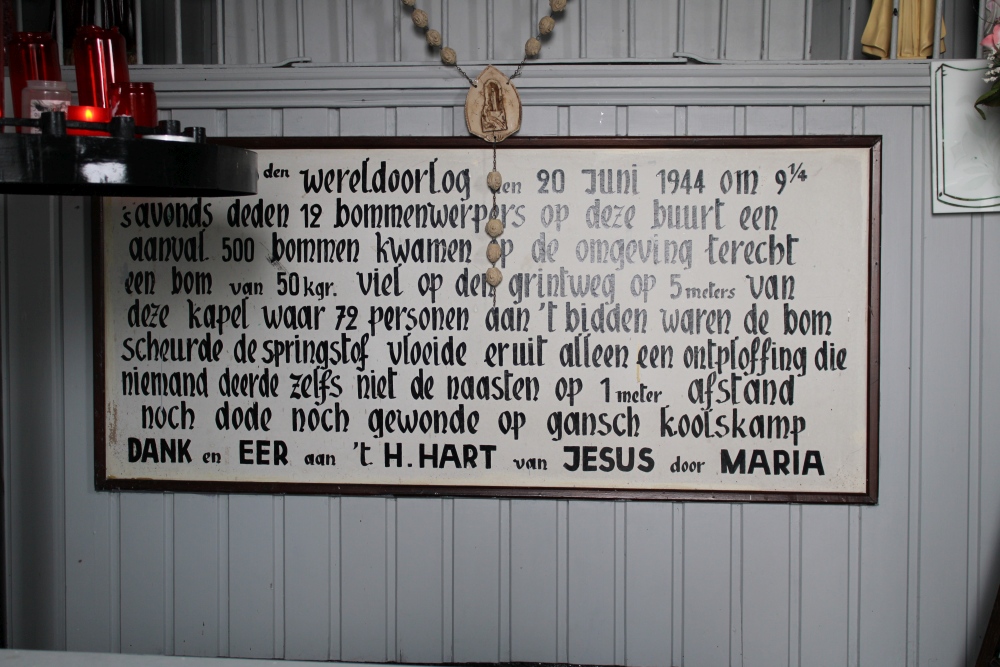 den wereldoorlog den 20 Juni 1944 om 9¼
's avonds deden 12 bommenwerpers op deze buurt een
aanval. 500 bommen kwamen op de omgeving terecht
een bom van 50 kgr. viel op den grintweg op 5 meters van
deze kapel waar 72 personen aan 't bidden waren de bom
scheurde de springstof vloeide eruit alleen een ontploffing die
niemand deerde zelfs niet de naasten op 1 meter afstand
noch dode noch gewonde op gansch koolskamp
DANK en EER aan 't H. HART van JESUS door MARIA